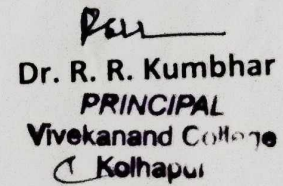 Dr. R. R. Kumbhar
PRINCIPAL
Vivekanand College
Kolhapur